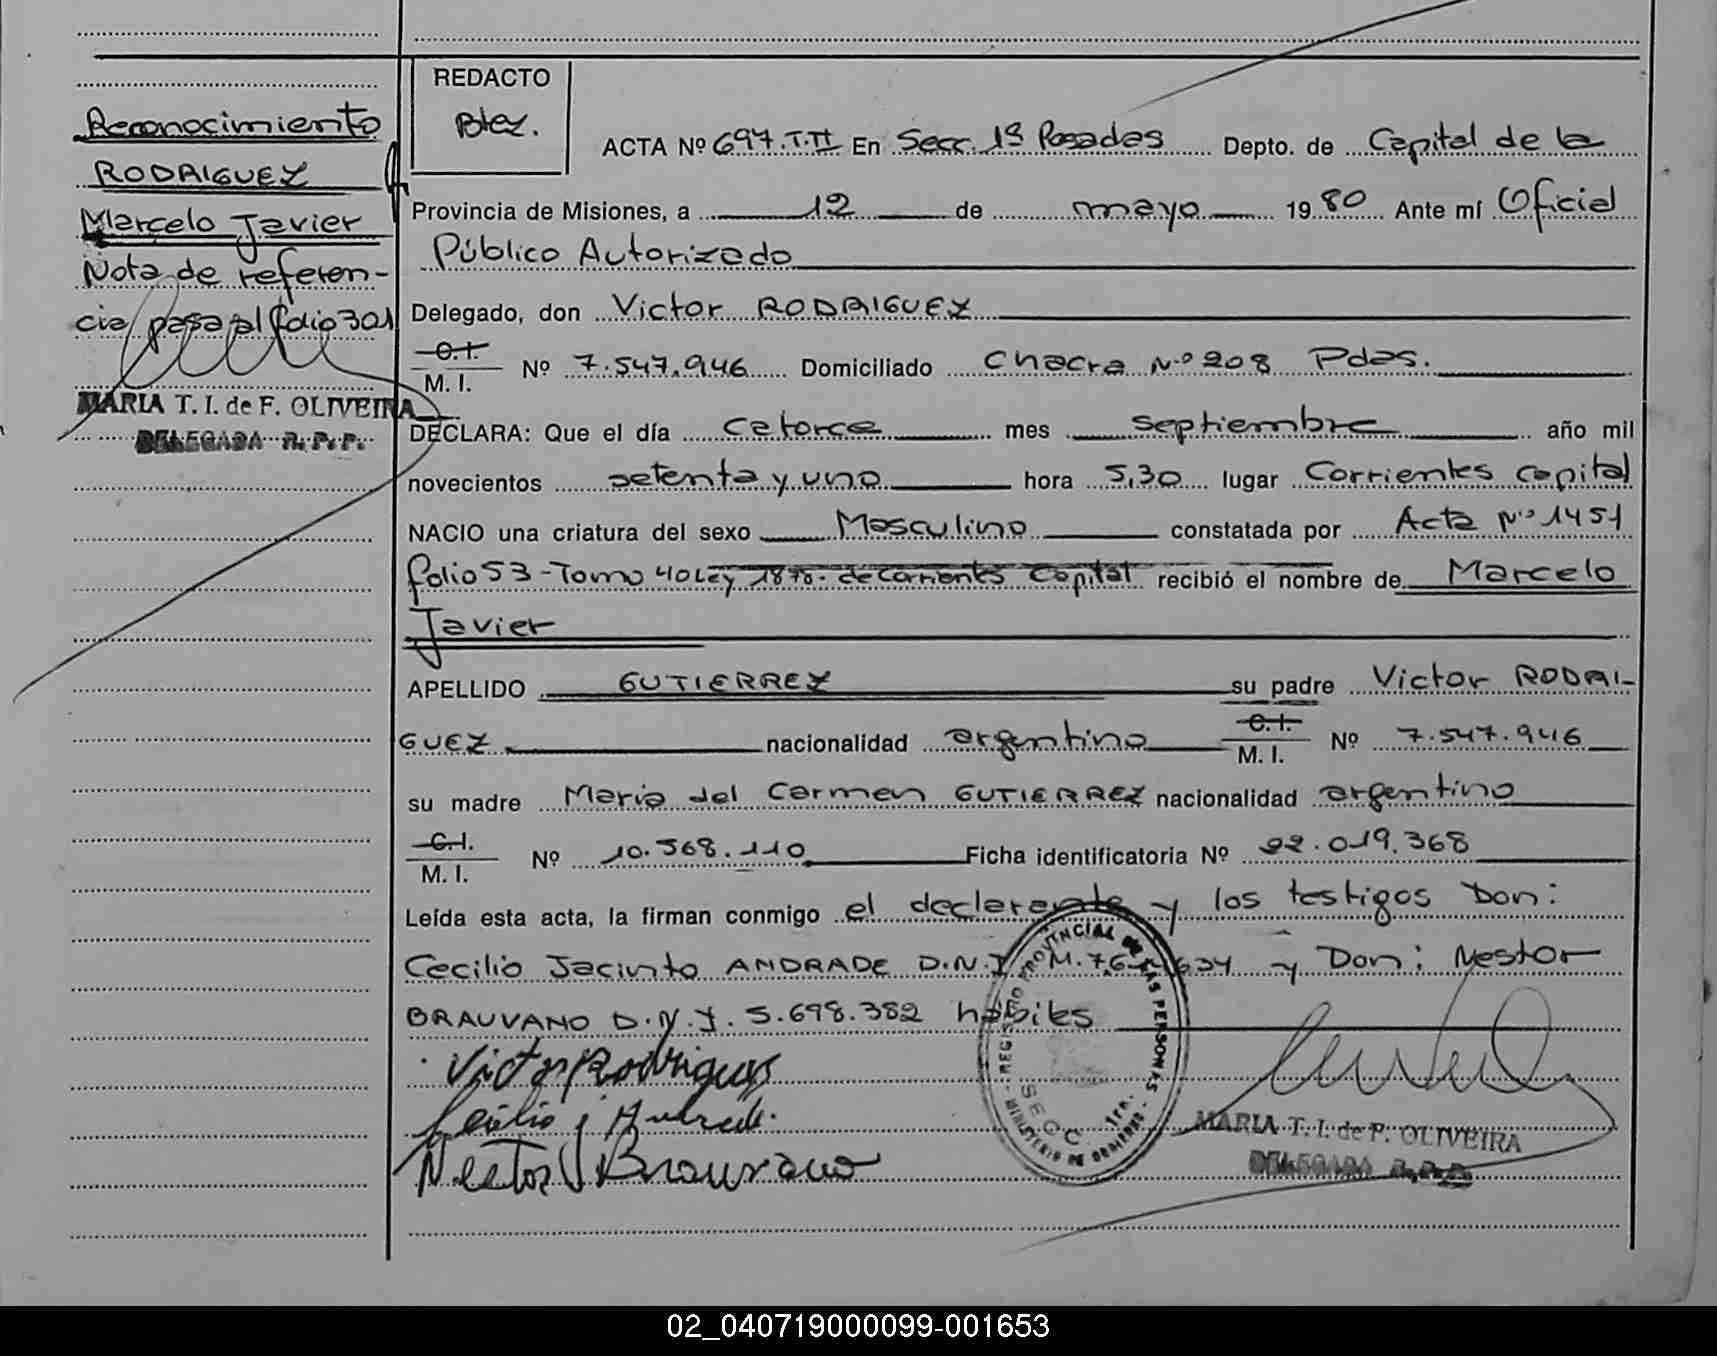 Reconocimiento
RODRIGUEZ
Marcelo Javier
Nota de referen-
cia pasa al folio 301
MARIA T. I. de F. OLIVEIRA
DELEGADA R. P. P.
REDACTO
Btez.
ACTA Nº 697.T.II En Secc. 1ª Posadas Depto. de Capital de la
Provincia de Misiones, a 12 de mayo 1980 Ante mí Oficial
Público Autorizado
Delegado, don Victor RODRIGUEZ
C.I.
M. I. Nº 7.547.946 Domiciliado Chacra Nº 208 Pdas.
DECLARA: Que el día catorce mes septiembre año mil
novecientos setenta y uno hora 5,30 lugar Corrientes capital
NACIO una criatura del sexo Masculino constatada por Acta Nº 1451
folio 53 - Tomo 40 Ley 1878 - de Corrientes Capital recibió el nombre de Marcelo
Javier
APELLIDO GUTIERREZ su padre Victor RODRI-
GUEZ nacionalidad argentino C.I.
M. I. Nº 7.547.946
su madre Maria del Carmen GUTIERREZ nacionalidad argentino
C.I.
M. I. Nº 10.568.110 Ficha identificatoria Nº 22.019.368
Leída esta acta, la firman conmigo el declarante y los testigos Don:
Cecilio Jacinto ANDRADE D.N.I M. y Don: Nestor
BRAUVANO D.N.I. 5.698.382 hábiles
Victor Rodriguez
Cecilio j Andrade.
Nestor Brauvano
REGISTRO PROVINCIAL DE LAS PERSONAS
MINISTERIO DE GOBIERNO
SECC. 1ra.
MARIA T. I. de F. OLIVEIRA
DELEGADA R. P. P.
02_040719000099-001653